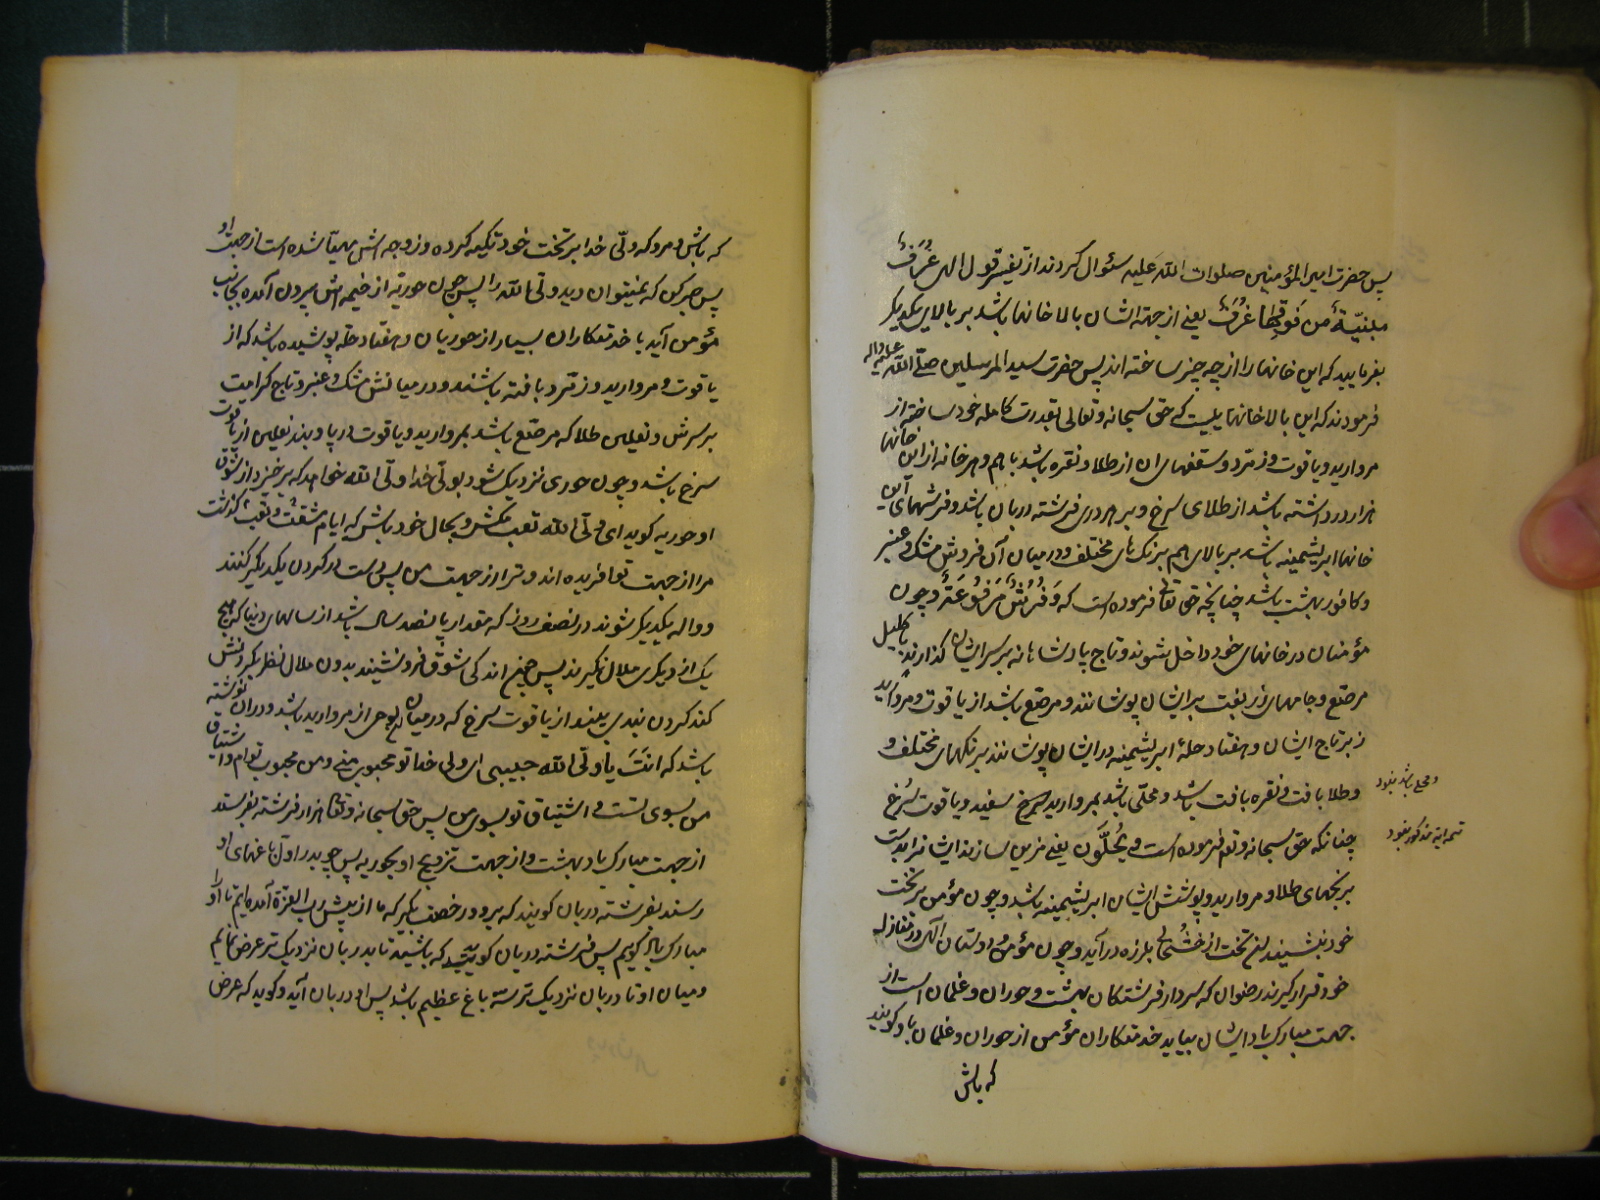 پس حضرت امیر المؤمنین صلوات الله علیه سئوال کردند از تفسیر قول الهی غُرَفٌ
مبنیّةٌ من فَوقِها غُرَفٌ یعنی از جهة ایشان بالا خانها باشد بر بالای یکدیگر
بفرمایید که این خانها را از چه چیز ساخته اند پس حضرت سید المرسلین صلّی الله علیه واله
فرمودند که این بالا خانها یست که حق سبحانه و تعالی بقدرت کامله خود ساخته از
مروارید و یاقوت و زمرّد و سقفهای ان از طلا و نقره باشد باهم و هر خانه از این خانها
هزار در داشته باشد از طلای سرخ و بر هر دری فرشته دربان باشد و فرشهای این
خانها ابریشمینه باشد بر بالای هم برنک های مختلف و در میان آن فروش مشک و عنبر
و کافور بهشت باشد چنانچه حق تعالی فرموده است که وَفُرُشٌ مَرفُوعَةٌ و چون
مؤمنان در خانهای خود داخل شوند و تاج پادشاهانه بر سر ایشان کذارند با کلیل
مرصّع و جامهای زر بفت بر ایشان پوشانند و مرصّع باشد از یاقوت و مروارید
زیر تاج ایشان و هفتاد حلهٔ ابریشمینه در ایشان پوشانند برنکهای مختلف و
و طلا بافت و نقره بافت باشد و محلّی باشد بمروارید سرخ سفید و یاقوت سُرخ
و محلی باشد نبود
چنانکه حق سبحانه وتع فرموده است یُحَلَّون یعنی مزین سازند ایشانرا بدست
تتمه ایه مذکور نبود
برنجهای طلا و مروارید و پوشش ایشان ابریشمینه باشد و چون مؤمن بر تخت
خود بنشیند تخت از خُشحالی بلرزه در آید و چون مؤمن و دوستان الهی در منازل
خود قرار کیرند رضوان که سردار فرشتکان بهشت و حوران و غلمان است از
جهت مبارک باد ایشان بیاید خدمتکاران مؤمن از حوران و غلمان باو کویند
که باش
که باش و مرو که ولّی خدا بر تخت خود تکیه کرده و زوجه اش مهیّا شده است از جهت او
پس صبر کن که نمیتوان دید ولّی الله را پس چون حوریّه از خیمه اش بیرون آمده بجانب
مؤمن آید با خدمتکاران بسیار از حوریان و هفتاد حله پوشیده باشد که از
یاقوت و مروارید و زمرّد بافته باشند و در میانش مشک و عنبر و تاج کرامت
بر سرش و نعلین طلا که مرصّع باشد بمروارید و یاقوت در پا و بند نعلین از یاقوت
سرخ باشد و چون حوری نزدیک شود بولّی خدا ولّی الله خواهد که برخیزد از شوق
او حوریه کوید ای ولّی الله تعب مکش و بحال خود باش که ایام مشقّت و تعب کذشت
مرا از جهت تو افریده اند و ترا از جهت من پس دست در کردن یکدیکر کنند
و واله یکدیکر شوند در نصف روز که مقدار پانصد سال باشد از سالهای دنیا که هیچ
یک از دیکری ملال نکیرند پس چون اندکی شوق فرو نشیند بدون ملال نظر بکردنش
کند کردن بندی بیند از یاقوت سرخ که در میان لوحی از مروارید باشد و در ان نوشته
باشد که انتَ یا ولّی الله حبیبی ای ولی خدا تو محبوب منی و من محبوب توام و اشتیاق
من بسوی تست و اشتیاق تو بسوی من پس حق سبحانه و تعالی هزار فرشته بفرستد
از جهت مبارک باد بهشت و از جهت تزویج او بحوریه پس چو بدر اول باغهای او
رسند بفرشته دربان کویند که برو و رخصت بکیر که ما از پیش رب العزة آمده ایم تا او را
مبارک باد کوییم پس فرشته دربان کویید که باشید تا بدربان نزدیک تر عرض نمایم
و میان او تا دربان نزدیک تر سه باغ عظیم باشد پس او دربان آید و کوید که عرض